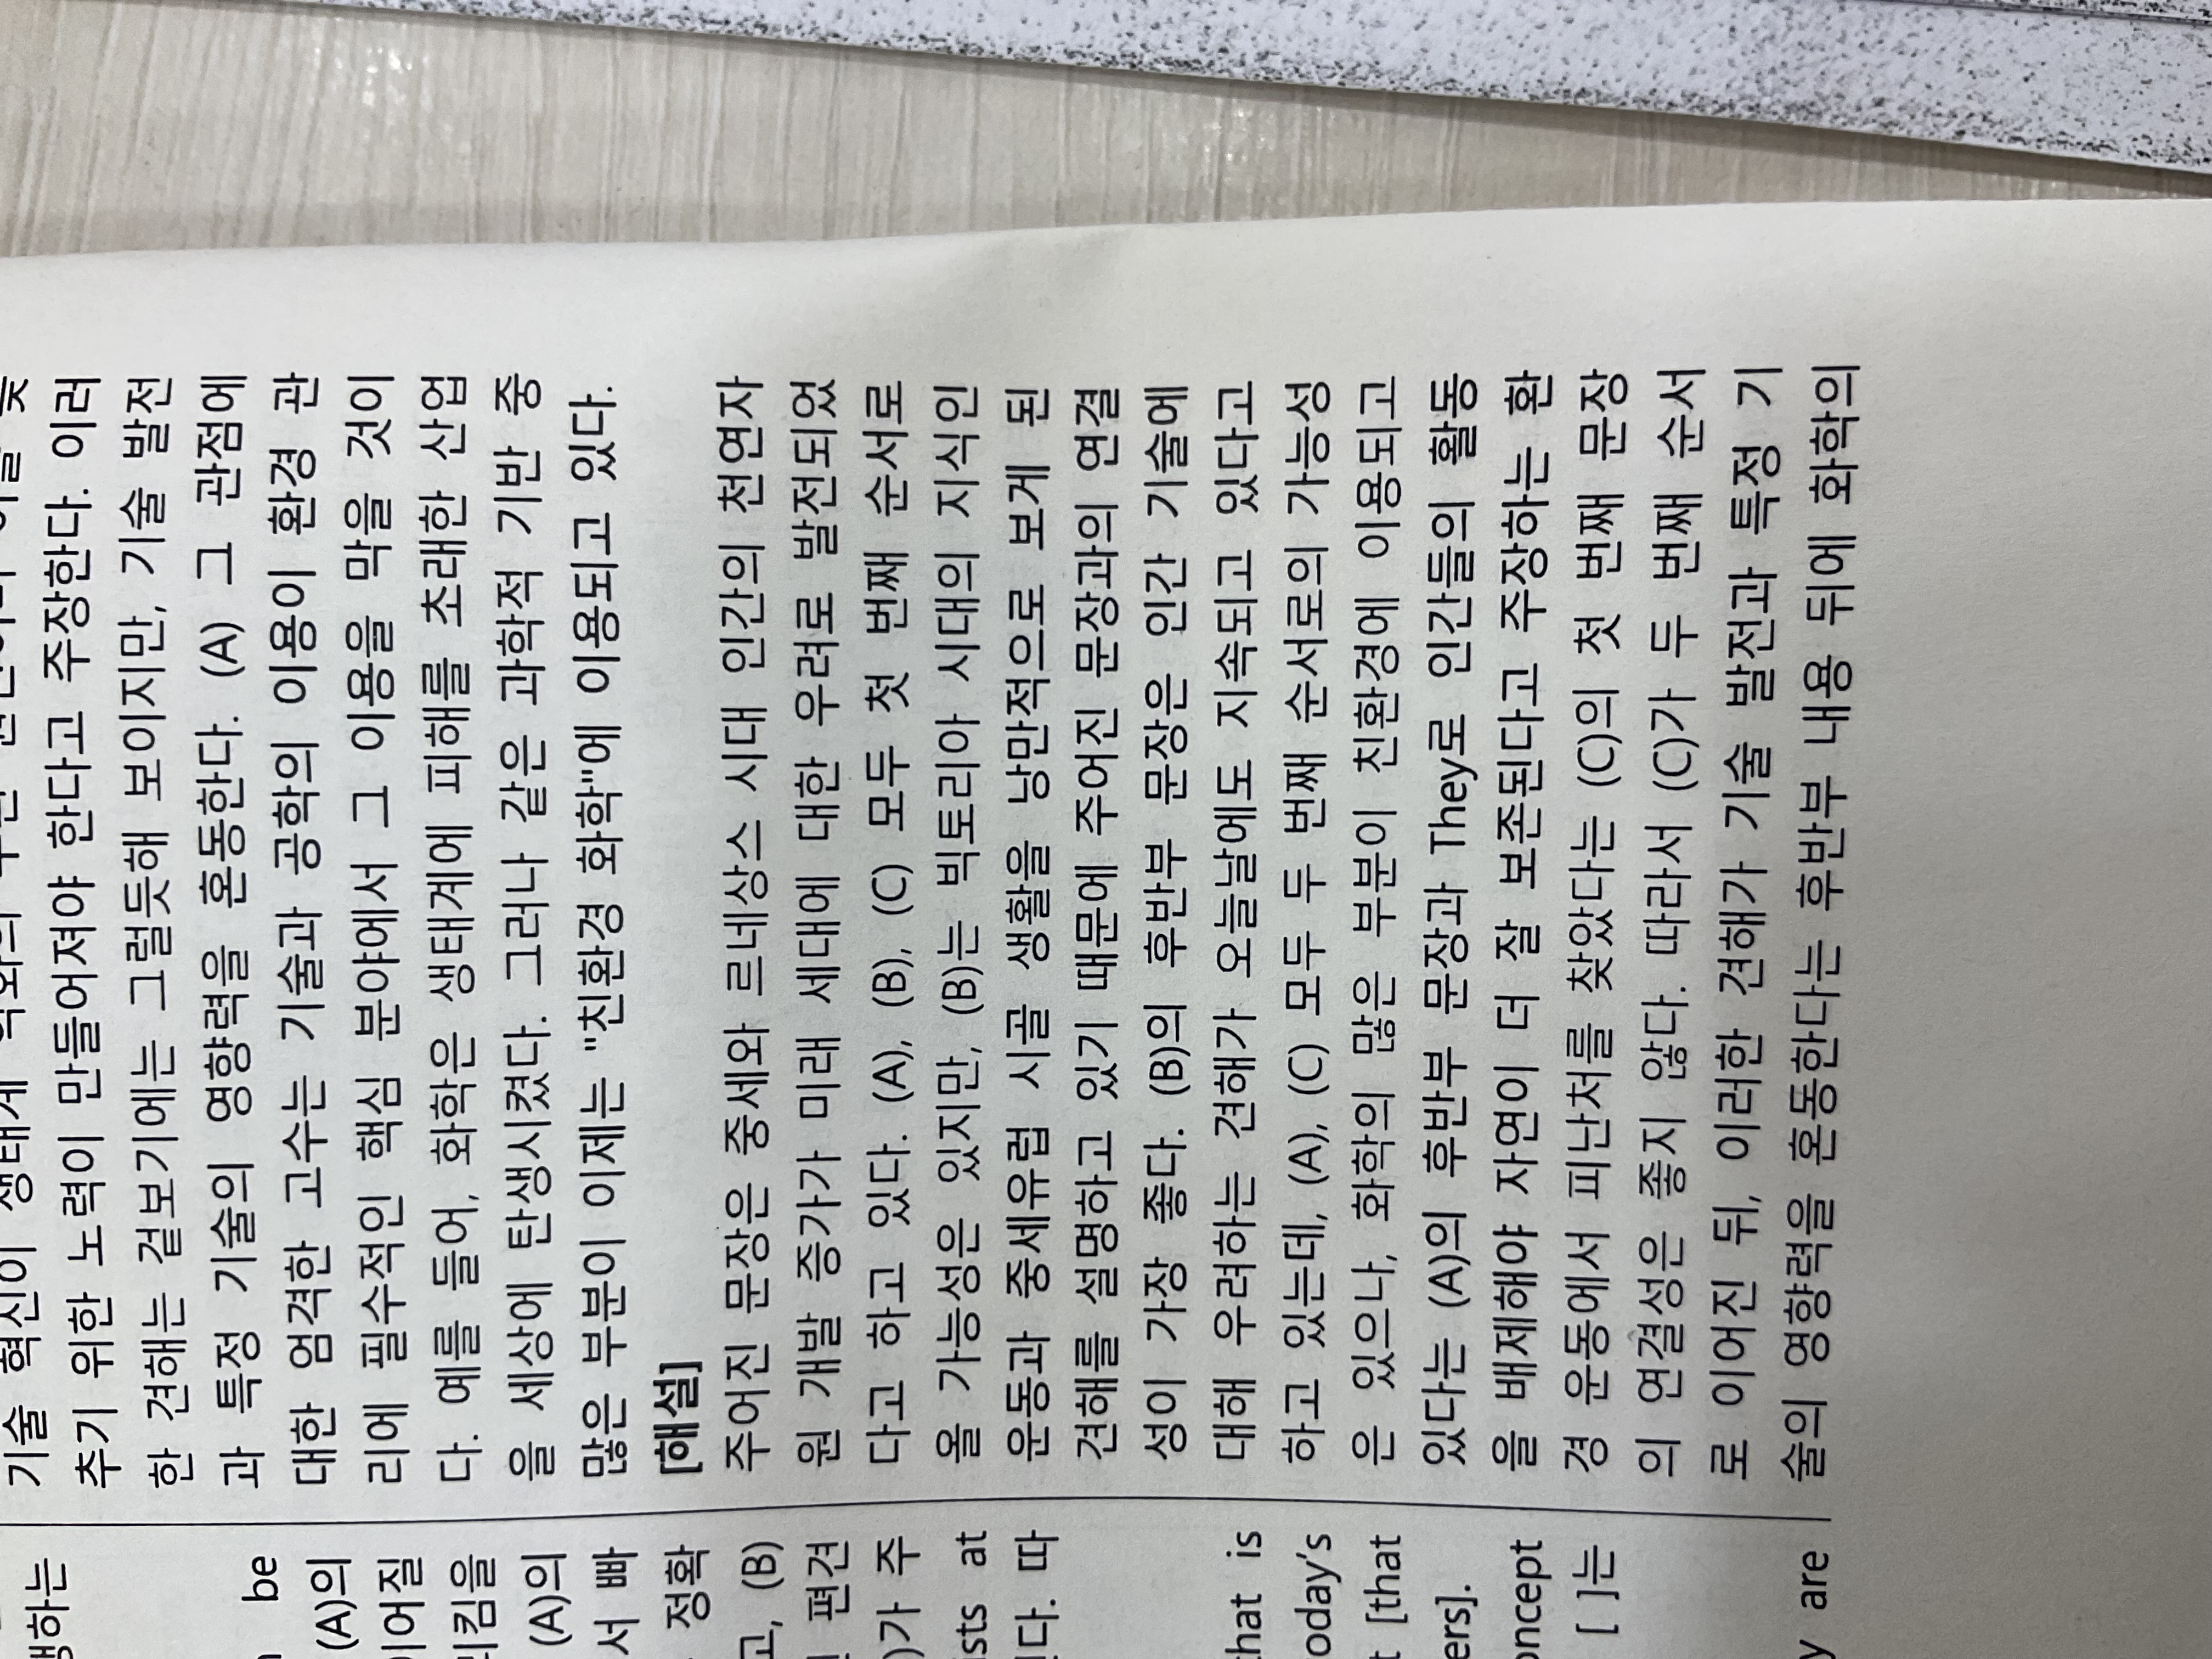 기술 혁신이 생태계
추기 위한 노력이 만들어져야 한다고 주장한다. 이러
한 견해는 겉보기에는 그럴듯해 보이지만, 기술 발전
과 특정 기술의 영향력을 혼동한다. (A) 그 관점에
대한 엄격한 고수는 기술과 공학의 이용이 환경 관
리에 필수적인 핵심 분야에서 그 이용을 막을 것이
다. 예를 들어, 화학은 생태계에 피해를 초래한 산업
을 세상에 탄생시켰다. 그러나 같은 과학적 기반 중
많은 부분이 이제는 "친환경 화학"에 이용되고 있다.
[해설]
주어진 문장은 중세와 르네상스 시대 인간의 천연자
원 개발 증가가 미래 세대에 대한 우려로 발전되었
다고 하고 있다. (A), (B), (C) 모두 첫 번째 순서로
올 가능성은 있지만, (B)는 빅토리아 시대의 지식인
운동과 중세유럽 시골 생활을 낭만적으로 보게 된
견해를 설명하고 있기 때문에 주어진 문장과의 연결
성이 가장 좋다. (B)의 후반부 문장은 인간 기술에
대해 우려하는 견해가 오늘날에도 지속되고 있다고
하고 있는데, (A), (C) 모두 두 번째 순서로의 가능성
은 있으나, 화학의 많은 부분이 친환경에 이용되고
있다는 (A)의 후반부 문장과 They로 인간들의 활동
을 배제해야 자연이 더 잘 보존된다고 주장하는 환
경 운동에서 피난처를 찾았다는 (C)의 첫 번째 문장
의 연결성은 좋지 않다. 따라서 (C)가 두 번째 순서
로 이어진 뒤, 이러한 견해가 기술 발전과 특정 기
술의 영향력을 혼동한다는 후반부 내용 뒤에 화학의
be
(A)의
(A)의
서 빠
정확
(B)
편견
가 주
at
따
that is
today's
[that
[ ]는
are